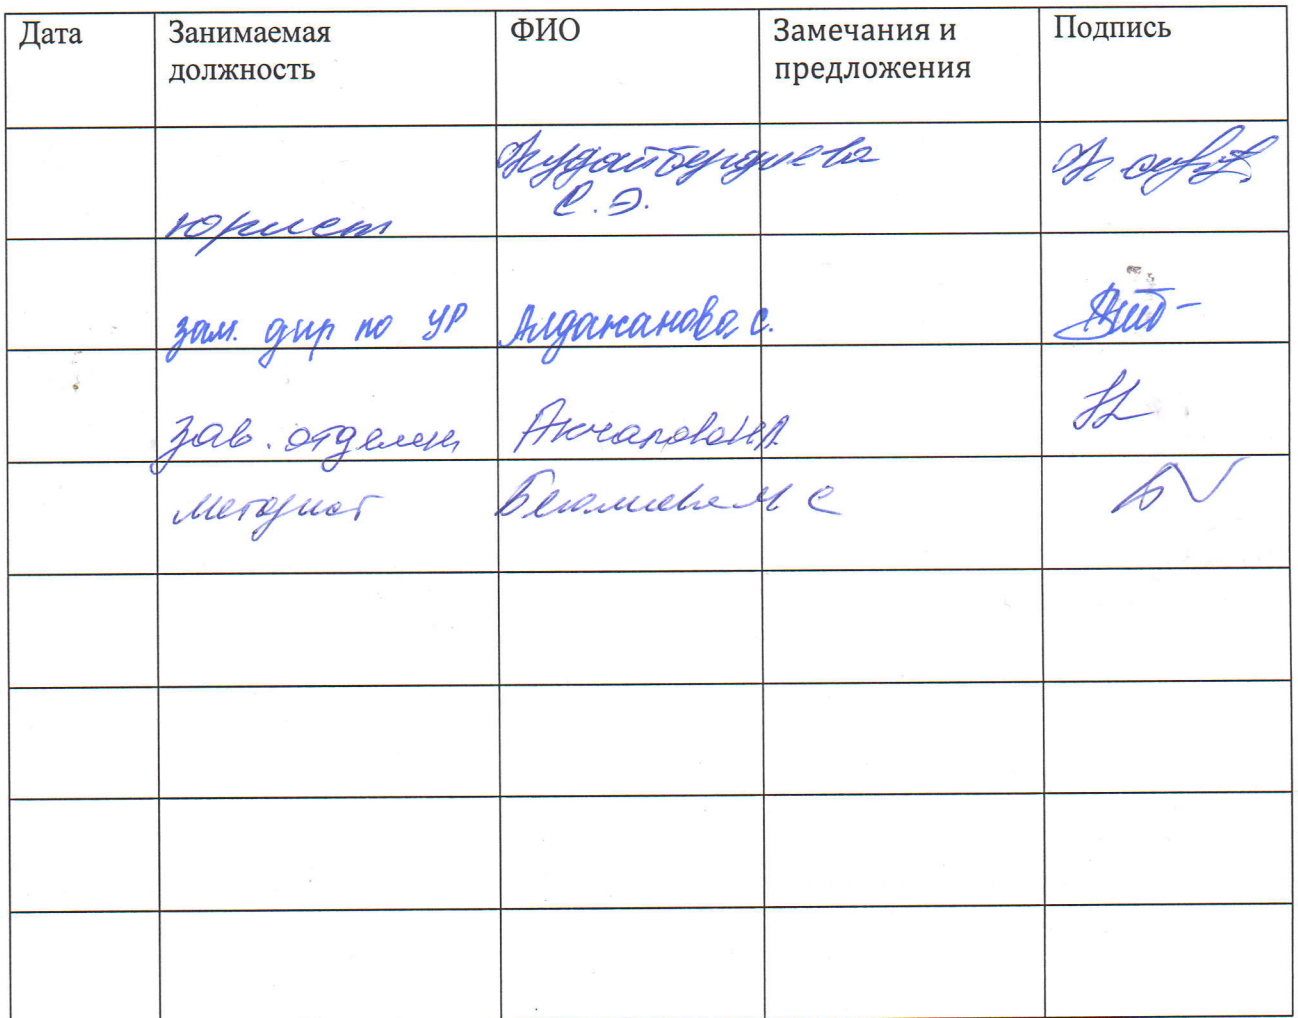 Дата Занимаемая должность ФИО Замечания и предложения Подпись
юрист Кудайбердиева С.Э.
зам. дир по УР Алджанова С.
зав. отделен Акчалова
методист